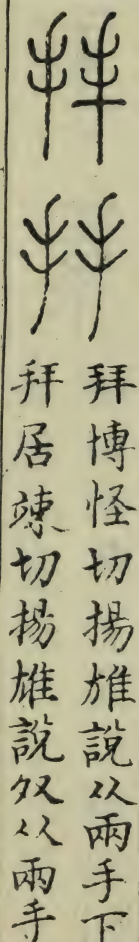 拜博怪切揚雄說从兩手下
居竦切揚雄說从兩手